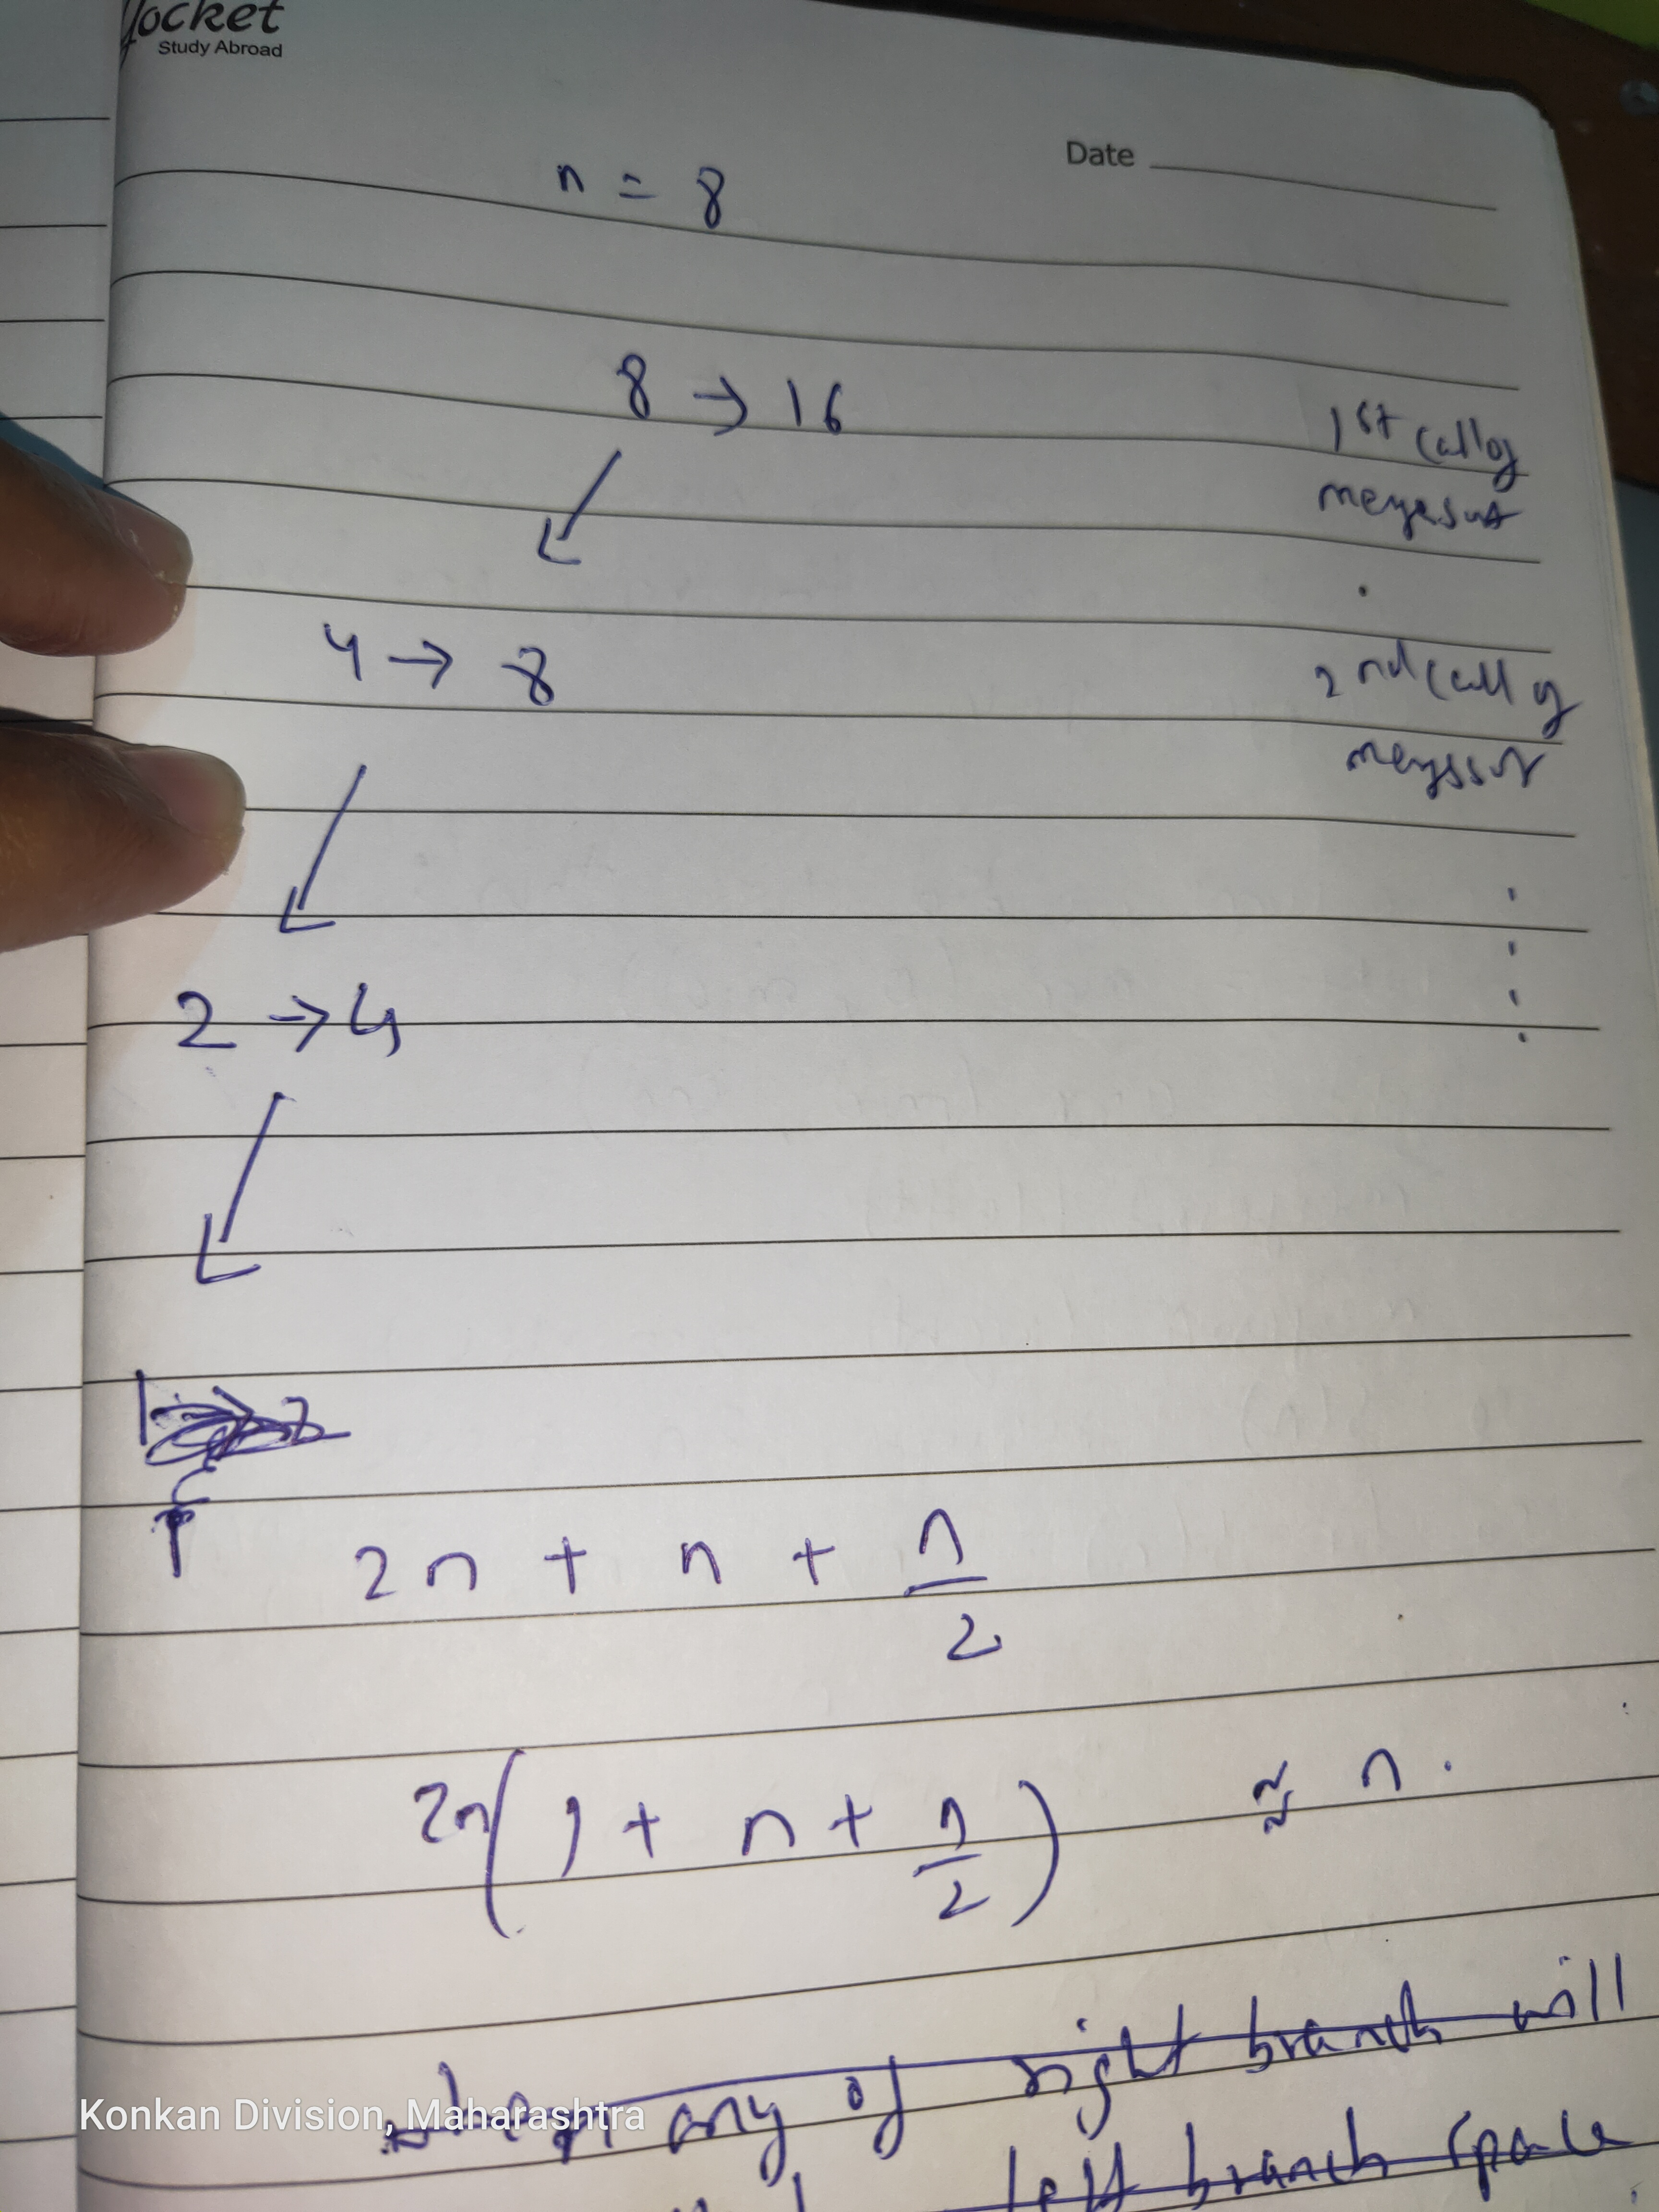 Yocket
Study Abroad
Date
n = 8
8 → 16
1st call of
mergesort
4 → 8
2nd call of
mergesort
2 → 4
1
2n + n + n/2
2n(1 + n + n/2) ≈ n.
any of right branch will
left branch space
Konkan Division, Maharashtra